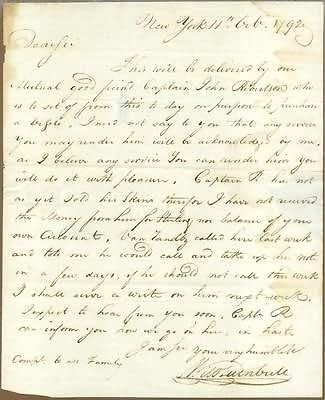 New York 11th Octo. 1792
Dear Sir
This will be delivered by our
Mutual good friend Captain John Robertson who
is to set of from this to day on purpose to purchase
a vessle. I need not say to you that any services
You may render him will be acknowledged by me,
as I beleive any service You can render him you
will do it with pleasure. Captain R. has not
as yet sold his therefor I have not received
the Money from him for nor balance of your
own Account. Van called here last week
and told me he would call and take up his note
in a few days, if he should not call this week
I shall serve a writ on him next week.
I expect to hear from you soon. Captn R
can inform you how we go on here, in haste
I am Sir your very humble St
Compts. to all Family
Turnbull